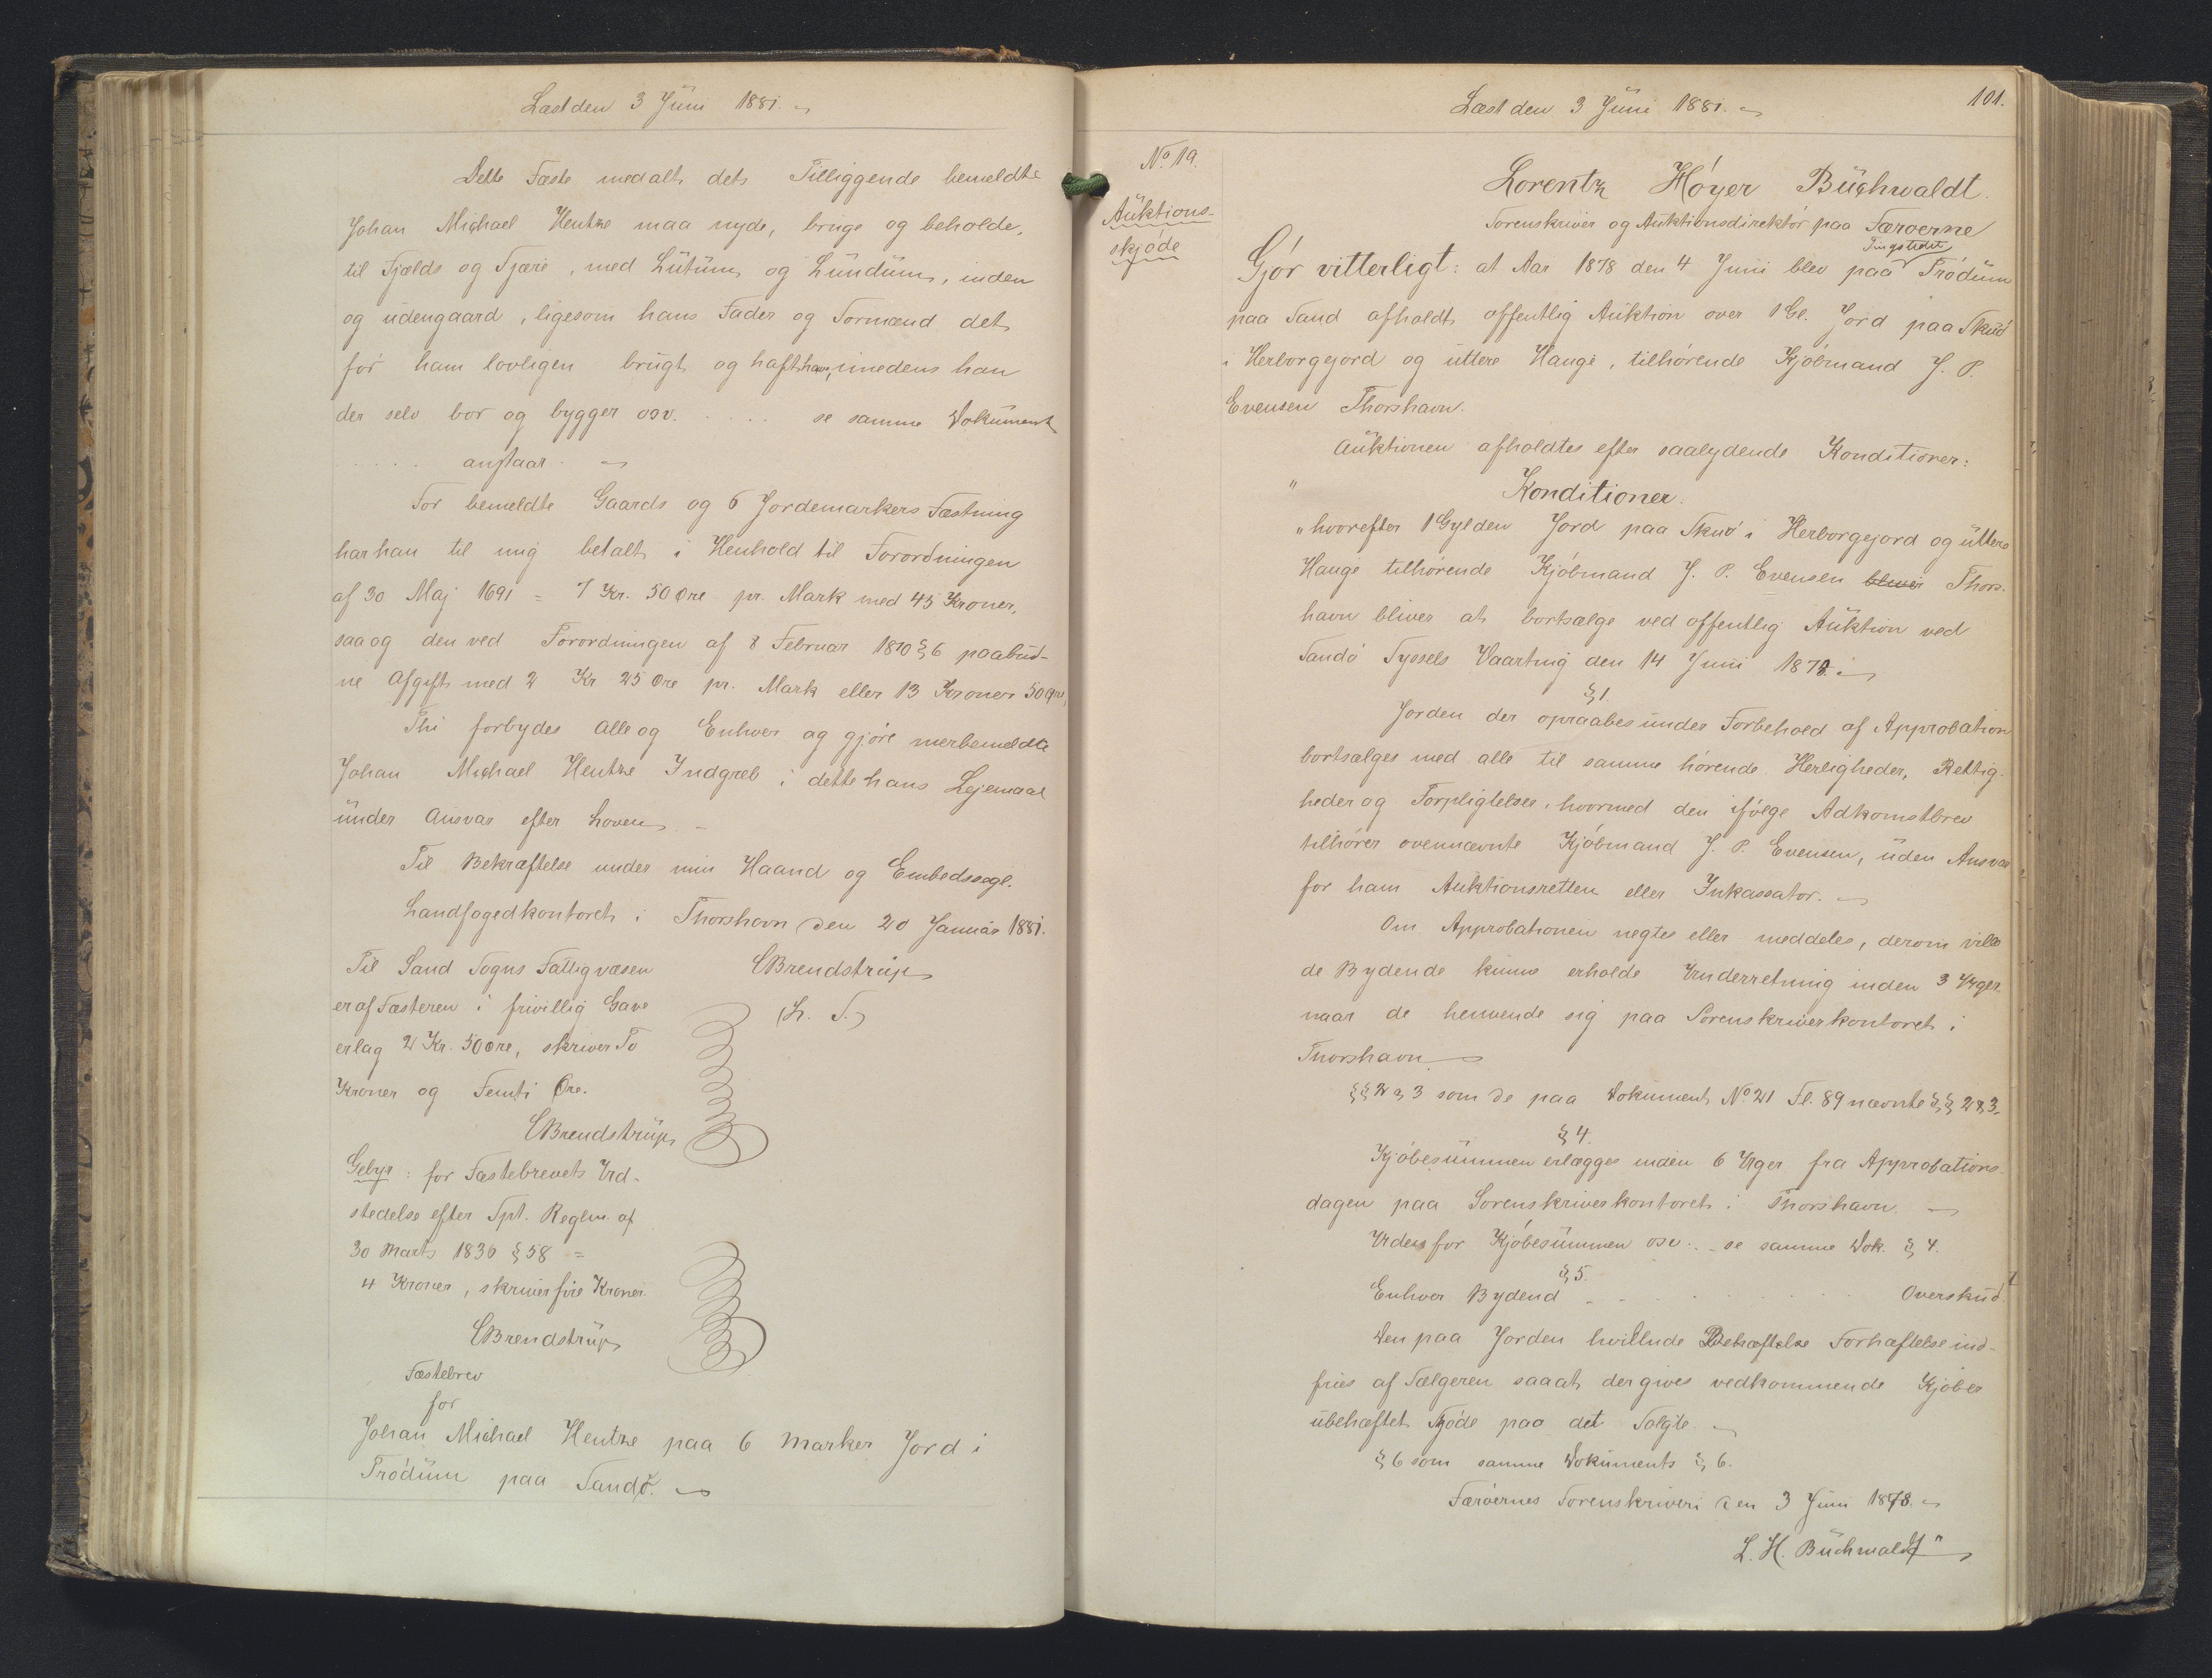 Læst den 3 Juni 1881.
Dette Fæste med alt dets Tilliggende bemeldte
Johan Michael Hentze maa nyde, bruge og beholde,
til Fjelds og Fjære, med Lutum og Lundum, inden
og udengaard, ligesom hans Fader og Formænd det
før ham lovligen brugt og haft have, imedens han
der selv bor og bygger osv. . . . . se samme Dokument
. . . . . anstaar.
For bemeldte Gaards og 6 Jordemarkers Fæstning
har han til mig betalt i Henhold til Forordningen
af 30 Maj 1691 = 7 Kr. 50 Øre pr. Mark med 45 Kroner,
saa og den ved Forordningen af 8 Februar 1810 § 6 paabud-
ne Afgift med 2 Kr 25 Øre pr. Mark eller 13 Kroner 50 Øre,
Thi forbydes Alle og Enhver ag gjøre merbemeldte
Johan Michael Hentze Indgreb i dette hans Lejemaal
under Ansvar efter Loven. –
Til Bekræftelse under min Haand og Embedssegl.
Landfogedkontoret i Thorshavn den 20 Januar 1881.
CBrendstrup
(L. S.)
Til Sand Sogns Fattigvæsen
er af Fæsteren i frivillig Gave
erlag 2 Kr. 50 Øre, skriver To
Kroner og Femti Øre.
CBrendstrup
Gebyr: for Fæstebrevets Ud-
stedelse efter Spt. Reglm. af
30 Marts 1836 § 58 =
4 Kroner, skriver fire Kroner.
CBrendstrup
Fæstebrev
for
Johan Michael Hentze paa 6 Marker Jord i
Trødum paa Sandø.
Læst den 3 Juni 1881.
101.
No. 19.
Auktions-
skjøde
Lorentz Høyer Buchwaldt.
Sorenskriver og Auktionsdirektør paa Færøerne
Gjør vitterligt: at Aar 1878 den 4 Juni blev paa Tingstedet Trødum
paa Sand afholdt offentlig Auktion over 1 Gl. Jord paa Skuø
i Herborgejord og uttere Hauge, tilhørende Kjøbmand J. P.
Evensen Thorshavn.
Auktionen afholdtes efter saalydende Konditioner:
" Konditioner.
" hvorefter 1 Gylden Jord paa Skuø i Herborgejord og uttere
Hauge tilhørende Kjøbmand J. P. Evensen bliver Thors-
havn bliver at bortsælge ved offentlig Auktion ved
Sandø Syssels Vaarting den 14 Juni 1878.
§ 1.
Jorden der opraabes under Forbehold af Approbation
bortsælges med alle til samme hørende Herligheder, Rettig-
heder og Forpligtelser, hvormed den ifølge Adkomstbrev
tilhører ovennævnte Kjøbmand J. P. Evensen, uden Ansvar
for ham Auktionsretten eller Inkassator.
Om Approbationen negtes eller meddeles, derom ville
de Bydende kunne erholde Underretning inden 3 Uger
naar de henvende sig paa Sorenskriverkontoret i
Thorshavn
§§ 2 & 3 som de paa Dokument No. 21 Fl. 89 nævnte §§ 2 & 3.
§ 4.
Kjøbesummen erlægges inden 6 Uger fra Approbations-
dagen paa Sorenskriverkontoret i Thorshavn.
Uden for Kjøbesummen osv. . se samme Dok. § 4.
§ 5.
Enhver Bydend . . . . . . . . . Overskud.
Den paa Jorden hvillnde Behæftelse Forhæftelse ind-
fries af Sælgeren saaat der gives vedkommende Kjøber
ubehæftet Skjøde paa det Solgte.
§ 6 som samme Dokuments § 6.
Færøernes Sorenskriveri den 3 Juni 1878.
L. H. Buchwaldt "